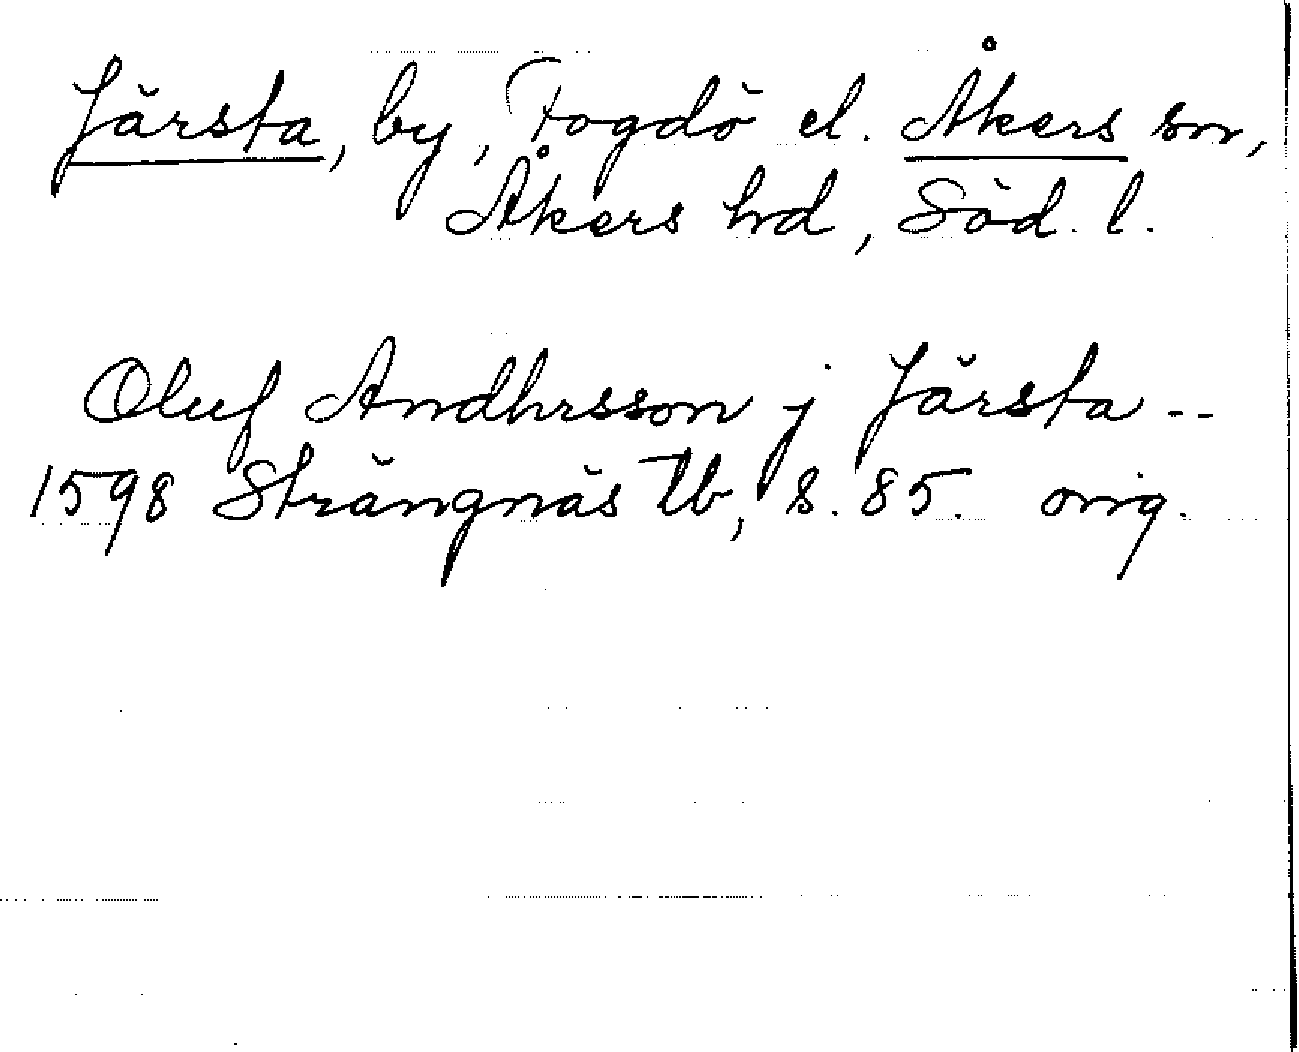 Järsta, by, Fogdö el. Åkers sn,
Åkers hd, Söd. l.
Oluf Andhrsson j Järsta --
1598 Strängnäs tb, s. 85. orig.